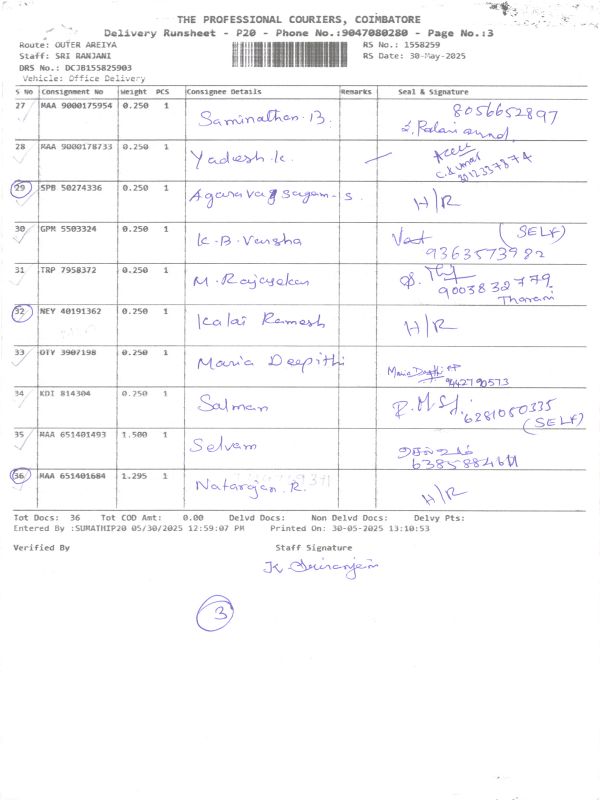 THE PROFESSIONAL COURIERS, COIMBATORE
Delivery Runsheet - P20 - Phone No.:9047080280 - Page No.:3
Route: OUTER AREIYA RS No.: 1558259
Staff: SRI RANJANI RS Date: 30-May-2025
DRS No.: DCJB155825903
Vehicle: Office Delivery
S No Consignment No Weight PCS Consignee Details Remarks Seal & Signature
27 MAA 9000175954 0.250 1 Saminathan.B. 8056652897
28 MAA 9000178733 0.250 1 Yadesh.K.
29 SPB 50274336 0.250 1 H/R
30 GPM 5503324 0.250 1 K.B.Varsha (SELF)
9363573982
31 TRP 7958372 0.250 1 M.Rajasekar
9003832779
Tharani
32 NEY 40191362 0.250 1 Kalai Ramesh H/R
33 OTY 3907198 0.250 1 Maria Deepithi
9442790573
34 KDI 814304 0.250 1 Salman R.M.S
6281050335
(SELF)
35 MAA 651401493 1.500 1 Selvam
36 MAA 651401684 1.295 1 Natarajan.R. H/R
Tot Docs: 36 Tot COD Amt: 0.00 Delvd Docs: Non Delvd Docs: Delvy Pts:
Entered By :SUMATHIP20 05/30/2025 12:59:07 PM Printed On: 30-05-2025 13:10:53
Verified By Staff Signature
3